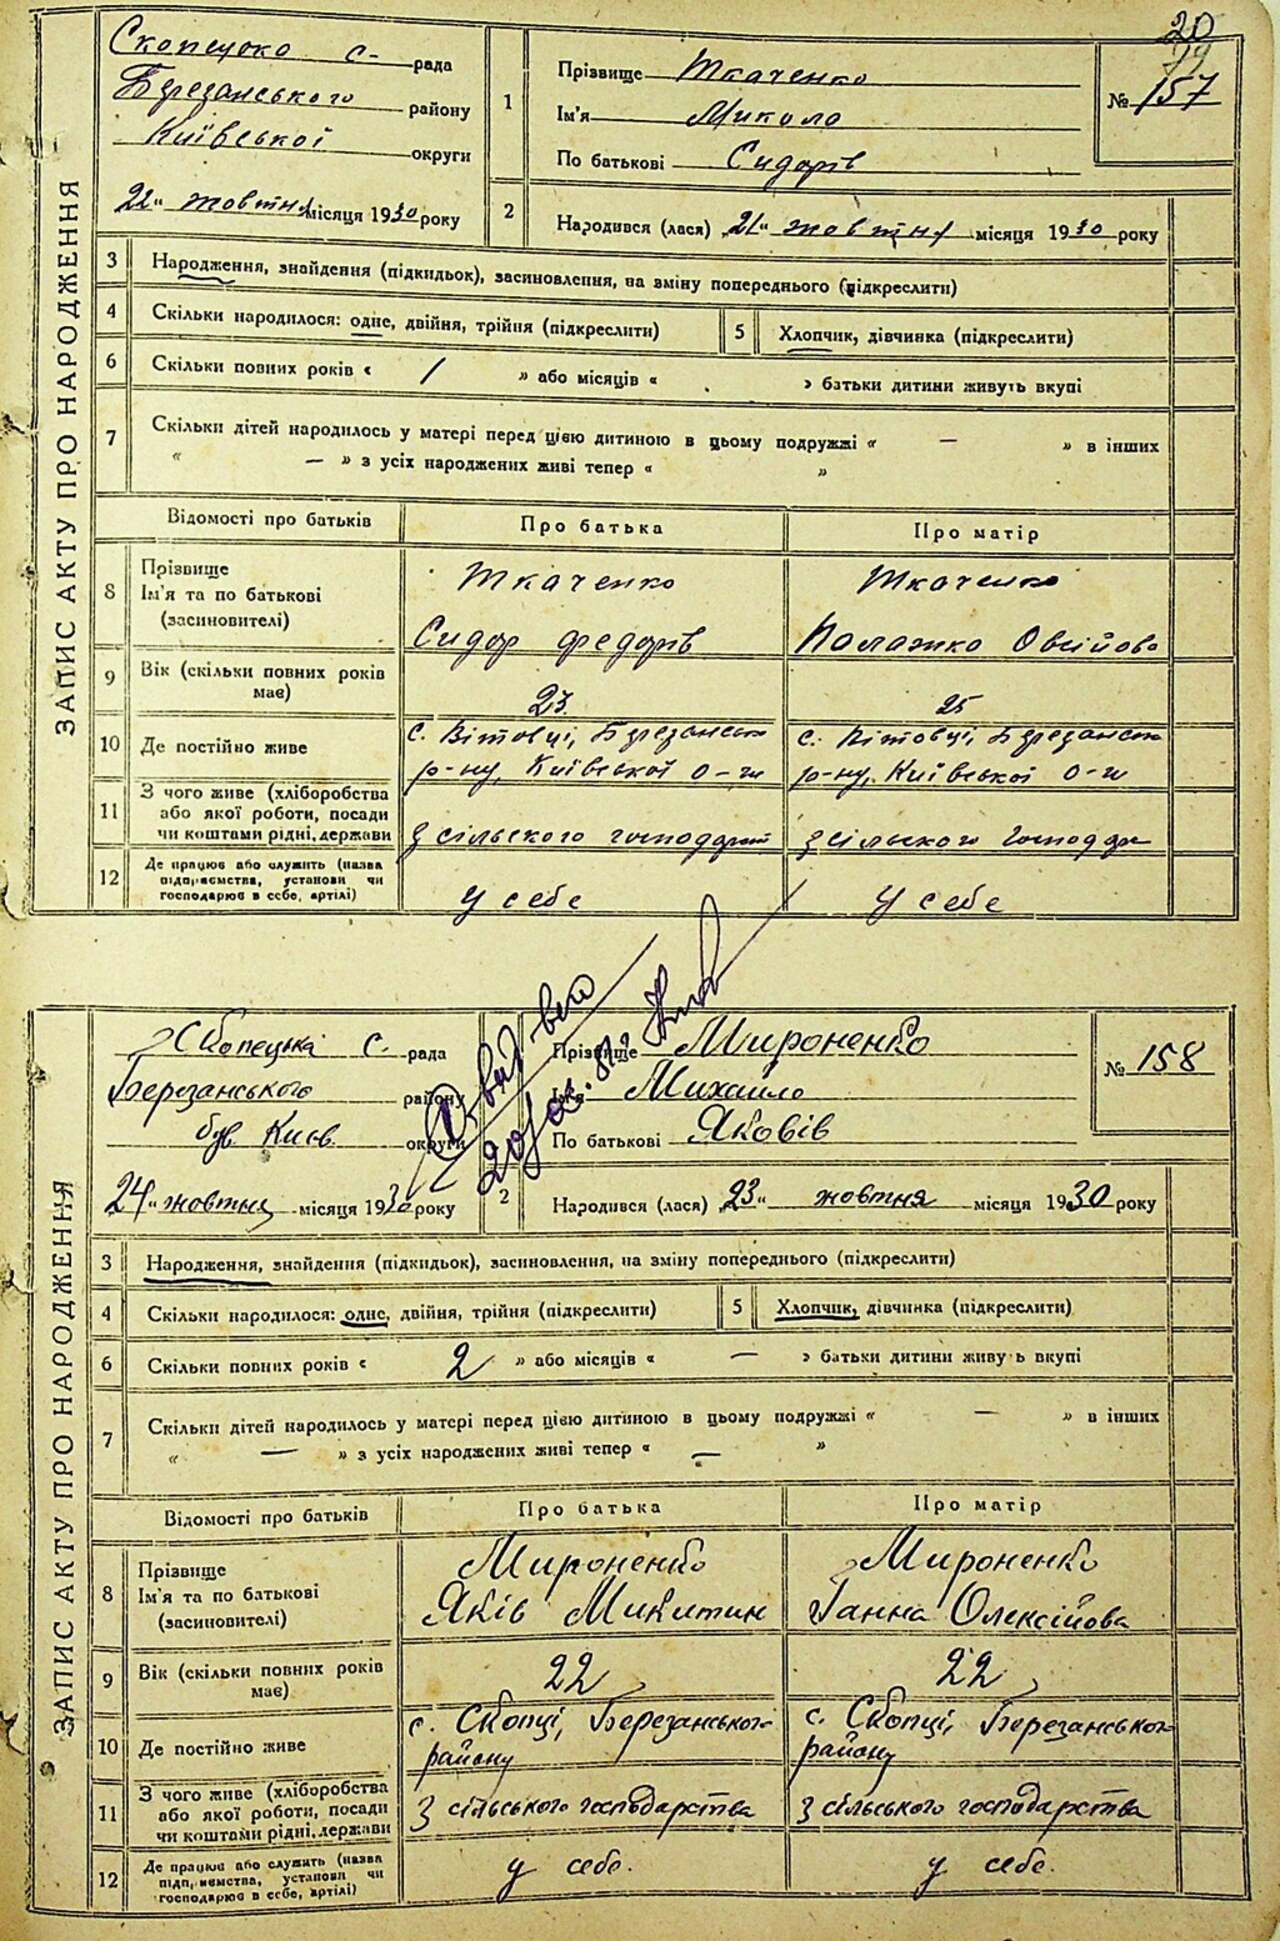 20
ЗАПИС АКТУ ПРО НАРОДЖЕННЯ
Скопецько с- рада
Березанського району
Київської округи
22 " жовтня місяця 1930 року
1
Прізвище Ткаченко
Ім'я Микола
По батькові Сидорів
№ 157
2 Народився (лася) „21" жовтня місяця 1930 року
3 Народження, знайдення (підкидьок), засиновлення, на зміну попереднього (підкреслити)
4 Скільки народилося: одне, двійня, трійня (підкреслити) 5 Хлопчик, дівчинка (підкреслити)
6 Скільки повних років « 1 » або місяців « » батьки дитини живуть вкупі
7 Скільки дітей народилось у матері перед цією дитиною в цьому подружжі « — » в інших
« — » з усіх народжених живі тепер « »
Відомості про батьків Про батька Про матір
8 Прізвище Ім'я та по батькові (засиновителі)
Ткаченко Ткаченко
Сидор Федорів Палажко Овсійова
9 Вік (скільки повних років має) 23 25
10 Де постійно живе
с. Вітовці, Березансько с. Вітовці, Березансь
р-ну, Київської о-ги р-ну, Київської о-ги
11 З чого живе (хліборобства або якої роботи, посади чи коштами рідні, держави
З сільского господарст З сільского господар
12 Де працює або служить (назва підприємства, установи чи господарює в себе, артілі)
У себе У себе
ЗАПИС АКТУ ПРО НАРОДЖЕННЯ
Скопецька с. рада
Березанського району
був. Києв. округи
24 " жовтня місяця 1930 року
Прізвище Мироненко
Ім'я Михайло
По батькові Яковів
№ 158
2 Народився (лася) „23" жовтня місяця 1930 року
3 Народження, знайдення (підкидьок), засиновлення, на зміну попереднього (підкреслити)
4 Скільки народилося: одне, двійня, трійня (підкреслити) 5 Хлопчик, дівчинка (підкреслити)
6 Скільки повних років « 2 » або місяців « — » батьки дитини живу ь вкупі
7 Скільки дітей народилось у матері перед цією дитиною в цьому подружжі « — » в інших
« — » з усіх народжених живі тепер « — »
Відомості про батьків Про батька Про матір
8 Прізвище Ім'я та по батькові (засиновителі)
Мироненко Мироненко
Яків Микитин Ганна Олексійова
9 Вік (скільки повних років має) 22 22
10 Де постійно живе
с. Скопці, Березанського с. Скопці, Березанського
району району
11 З чого живе (хліборобства або якої роботи, посади чи коштами рідні, держави
З сільського господарства З сільського господарства
12 Де працює або служить (назва підприємства, установи чи господарює в себе, артілі)
у себе. у себе.